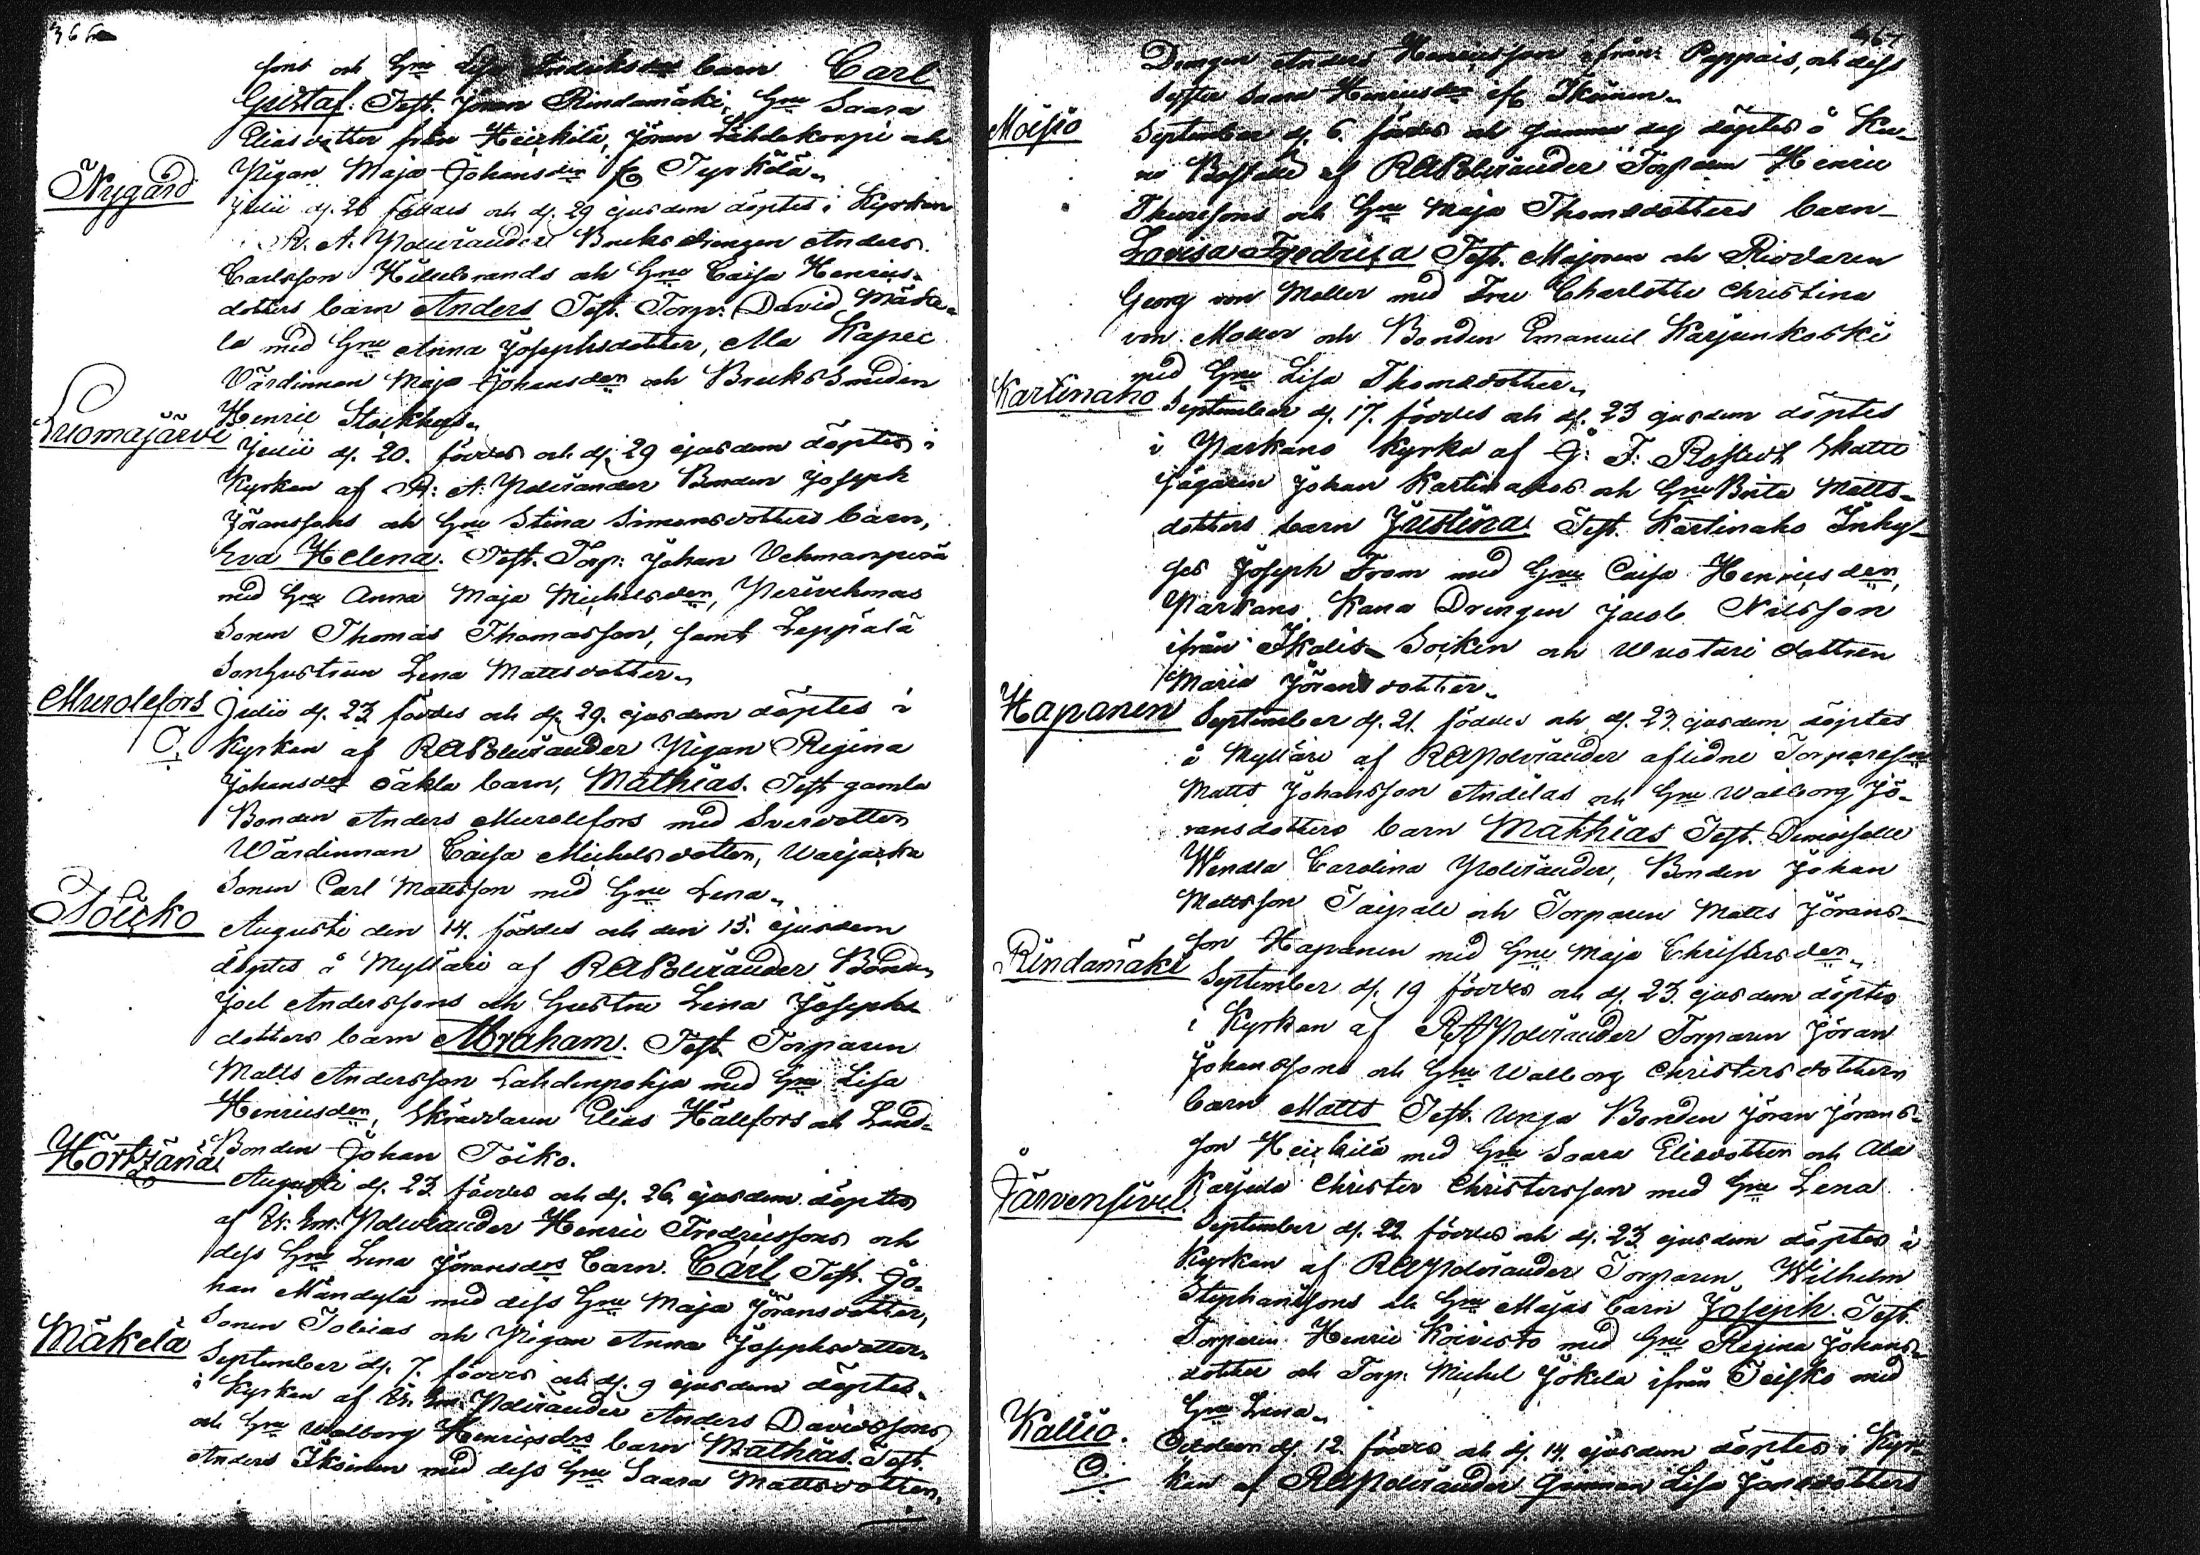 366
sons och Hru Lisa Indriksdrs barn Carl
Gustaf. Test. Jöran Rindamäki, Hru Saara
Eliasdotter från Heickilä, Jöran Lähdekorpi och
Pigan Maja Johansdr fr Tyrkölä
Nygård
Julii d. 26 föddes och d. 29 ejusdem döptes i Kyrkan
R. A. Polviander Bruksdrengen Anders
Carlsson Hillebrands och Hru Caisa Henrics
dotters barn Anders Test. Torp. David Mäke
lä med Hru Anna Josephsdotter, Ala Kapee
Värdinnan Maja Johansdr och Bruks Smeden
Henric Stockfors
Luomajärvi
Julii d. 20. föddes och d. 29 ejusdem döptes i
Kyrkan af R. A. Polviander Bonden Joseph
Jöranssons och Hru Stina Simonsdotters barn,
Eva Helena. Test. Torp. Johan Vehmanperä
med Hru Anna Maja Michelsdr, Perivehmas
Sonen Thomas Thomasson, samt Leppälä
Sonhustrun Lena Mattsdotter
Murolefors
Julii d. 23 föddes och d. 29. ejusdem döptes i
O. Kyrkan af RAPolviander Pigan Regina
Johansdrs oäkta barn, Mathias. Test gamla
Bonden Anders Murolefors med Svärdotter
Wärdinnan Caisa Michelsdotter, Warjakka
Sonen Carl Mattsson med Hru Lena
Töicko
Augusti den 14. föddes och den 15. ejusdem
döptes å Mylläri af RAPolviander Bonden
Joel Anderssons och Hustru Lena Josephs
dotters barn Abraham. Test. Torparen
Matts Andersson Lahdenpohja med Hru Lisa
Henricsdr, Skräddaren Elias Hällfors och Land
Bonden Johan Töiko.
Hörtzänä
Augusti d. 23. föddes och d. 26. ejusdem döptes
af Polviander Henric Fredricssons och
dess Hru Lena Jöransdrs barn. Carl Test. Jo
han Mändylä med dess Hru Maja Jöransdotter,
Sonen Tobias och Pigan Anna Josephsdotter
Mäkelä
September d. 7. föddes och d. 9 ejusdem döptes
i Kyrkan af Polviander Anders Davidssons
och Hru Walborg Henricsdrs barn Mathias. Test.
Anders Ikoinen med dess Hru Saara Mattsdotter,
367
Drengen Anders Henricsson ifrån Pappais, och dess
syster Saara Henricsdr af Ikoinen
Moisio
September d. 6. föddes och samma dag döptes å Kur
no Boställe af RAPolviander Torparen Henric
Thuressons och Hru Maja Thomedotters barn
Lovisa Fredrica Test. Majoren och Riddaren
Georg von Moller med Fru Charlotta Christina
von Moller och Bonden Emanuel Karjunkoski
med Hru Lisa Thomedotter
Kartinaho
September d. 17. föddes och d. 23 ejusdem döptes
i Parkano Kyrka af G. F. Rostedt Skatte
Jägaren Johan Kartinahos och Hru Brita Matts
dotters barn Justina. Test. Kartinaho Inhy
ses Joseph From med Hru Caisa Henricsdr,
Parkano Kana Drengen Jacob Nilsson
ifrån Ikalis Socken och Wuotari dottren
Maria Jöransdotter
Hapanen
September d. 21. föddes och d. 23. ejusdem döptes
å Mylläri af RAPolviander aflidne Torpareson
Matts Johansson Andilas och Hru Walborg Jö
ransdotters barn Mathias Test. Demoiselle
Wendla Carolina Polviander, Bonden Johan
Mattsson Taipale och Torparen Matts Jörans
son Hapanen med Hru Maja Christersdr
Rindamäki
September d. 19 föddes och d. 23. ejusdem döptes
i Kyrkan af RAPolviander Torparen Jöran
Johanssons och Hru Walborg Christersdotters
barn Matts Test. unga Bonden Jöran Jörans
son Heickilä med Hru Saara Eliedotter och Ala
Karjula Christer Christersson med Hru Lena
Järvensivu
September d. 22 föddes och d. 23 ejusdem döptes i
Kyrkan af RAPolviander Torparen Wilhelm
Stephanssons och Hru Majas barn Joseph. Test.
Torparen Henric Koivisto med Hru Regina Johans
dotter och Torp. Michel Jokela ifrån Teisko med
Hru Lena
Kallio.
October d. 12 föddes och d. 14 ejusdem döptes i Kyr
O. kan af RAPolviander Lisa Jonsdotters